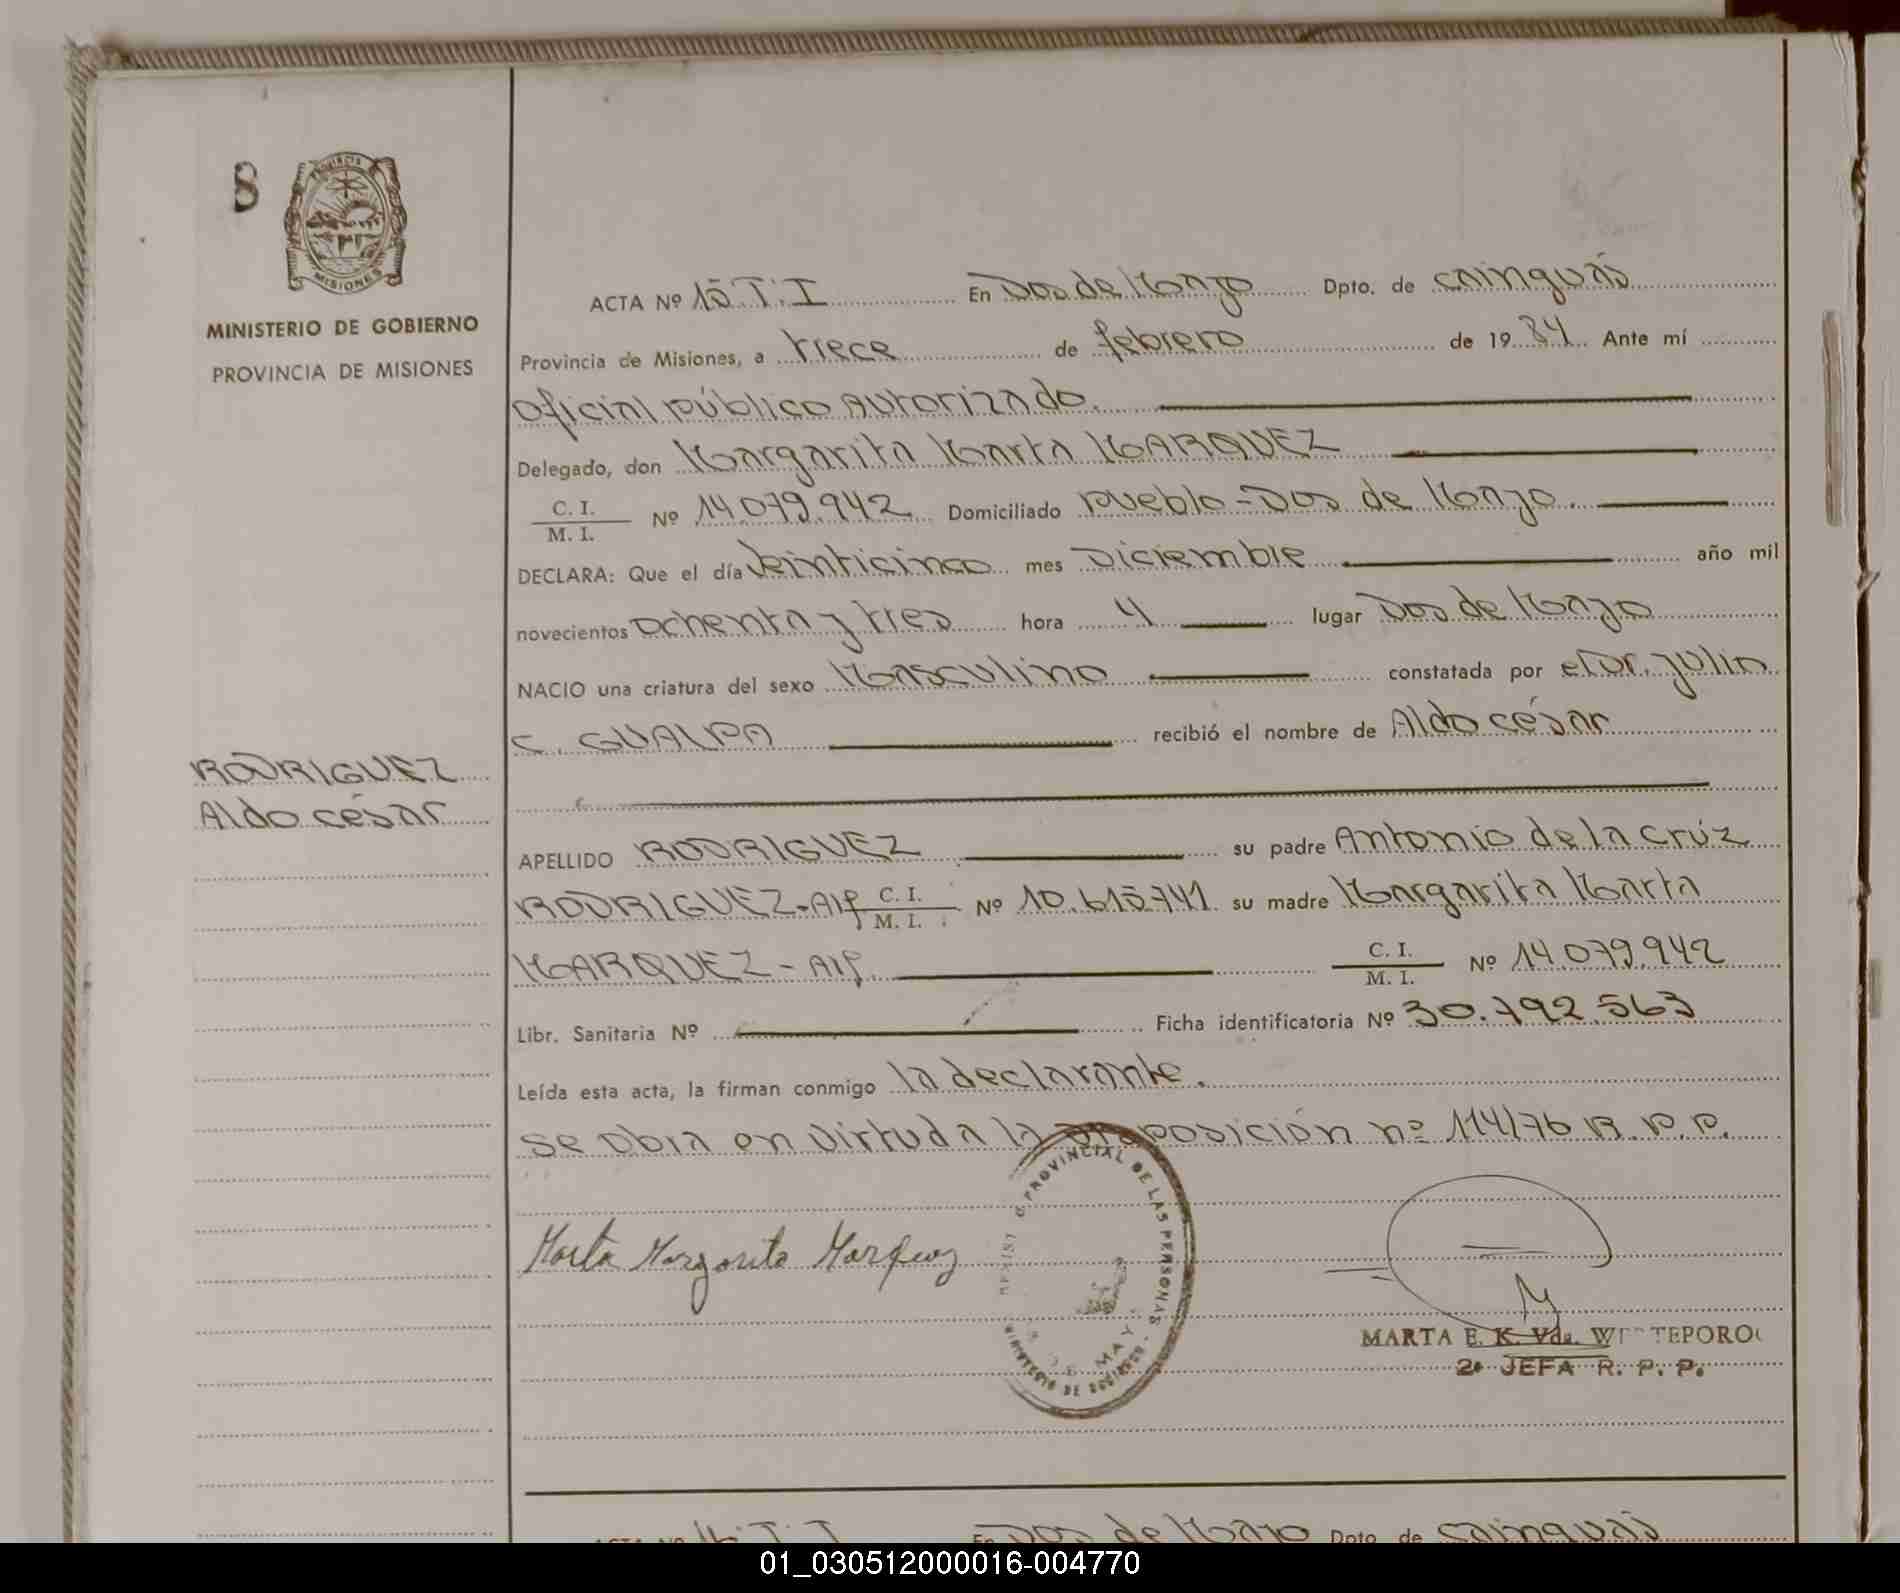 8
MISIONES
MINISTERIO DE GOBIERNO
PROVINCIA DE MISIONES
RODRIGUEZ
Aldo césar
ACTA Nº 15.T.I En Dos de Mayo Dpto. de cainguás
Provincia de Misiones, a trece de febrero de 1984. Ante mí
oficial público autorizado.
Delegado, don Margarita Marta MARQUEZ
C. I. / M. I. Nº 14.079.942 Domiciliado pueblo-Dos de Mayo.
DECLARA: Que el día veinticinco mes Diciembre año mil
novecientos ochenta y tres hora 4 lugar Dos de Mayo
NACIO una criatura del sexo Masculino constatada por el Dr. Julio
C. GUALPA recibió el nombre de Aldo césar
APELLIDO RODRIGUEZ su padre Antonio de la Crúz
RODRIGUEZ-Arg C. I. / M. I. Nº 10.615.741 su madre Margarita Marta
MARQUEZ - Arg C. I. / M. I. Nº 14.079.942
Libr. Sanitaria Nº Ficha identificatoria Nº 30.792.563
Leída esta acta, la firman conmigo la declarante.
se obra en virtud a la disposición nº 114/76 R.P.P.
PROVINCIAL DE LAS PERSONAS
MINISTERIO DE GOBIERNO
Marta Margarita Marquez
MARTA E. K. Vda.
2ª JEFA R. P. P.
ACTA Nº 16.T.I En Dos de Mayo Dpto. de cainguás
01_030512000016-004770